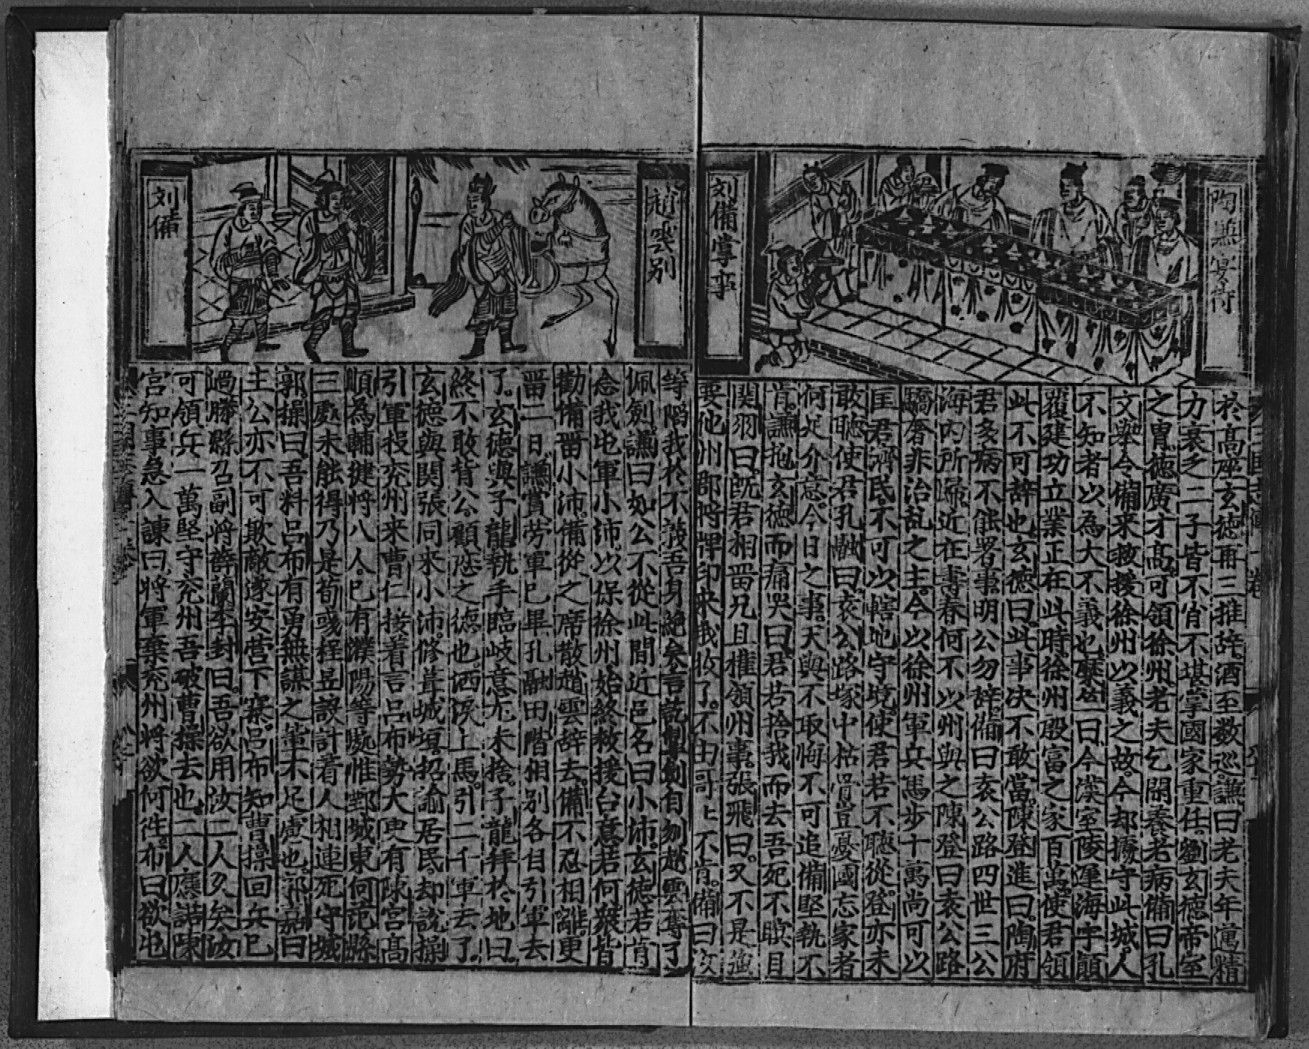 陶謙宴待
刘備掌事
於高座玄德再三推辞酒至数巡謙曰老夫年邁精
力衰乏二子皆不肖不堪掌國家重任劉玄德帝室
之胄德廣才高可領徐州老夫乞閑養老病備曰孔
文舉令備来救援徐州以義之故今却據守此城人
不知者以為大不義也糜竺曰今漢室陵遲海宇顛
覆建功立業正在此時徐州殷富之家百萬使君領
此不可辞也玄德曰此事决不敢當陳登進曰陶府
君多病不能署事明公勿辞備曰袁公路四世三公
海内所歸近在壽春何不以州與之陳登曰袁公路
驕奢非治乱之主今以徐州軍兵馬步十萬尚可以
匡君濟民不可以轄地守境使君若不聽從登亦未
敢聽使君孔融曰袁公路塚中枯骨豈憂國忘家者
何足介意今日之事天與不取悔不可追備堅執不
肯謙抱玄德而痛哭曰君若捨我而去吾死不瞑目
関羽曰既君相留兄且權領州事張飛曰又不是強
要他州郡将牌印来我收了不由哥上不肯備曰汝
趙雲别
刘備
等陷我於不義吾身絶矣言訖掣劍自刎趙雲奪了
佩劍謙曰如公不從此間近邑名曰小沛玄德若肯
念我屯軍小沛以保徐州始終救援台意若何衆皆
勸備留小沛備從之席散趙雲辞去備不忍相離更
留一日謙賞劳軍已畢孔融田階相别各自引軍去
了玄德與子龍執手臨岐意尤未捨子龍拜於地曰
終不敢背公顧恋之德也洒淚上馬引二千軍去了
玄德與関張同来小沛修葺城垣招諭居民却說操
引軍投兖州来曹仁接着言吕布勢大更有陳宮高
順為輔徤将八人已有濮陽等䖏惟鄄城東何范縣
三處未能得乃是荀彧程昱設計着人相連死守城
郭操曰吾料吕布有勇無謀之輩不足慮也郭嘉曰
主公亦不可欺敵遂安营下寨吕布知曹操回兵已
過滕縣召副将薛蘭李封曰吾欲用汝二人久矣汝
可領兵一萬堅守兖州吾破曹操去也二人應諾陳
宮知事急入諫曰将軍棄兖州将欲何徃布曰欲屯